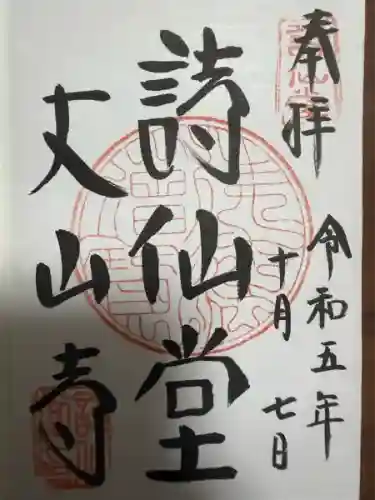 奉拝
令和五年
十月七日
詩仙堂
丈山寺